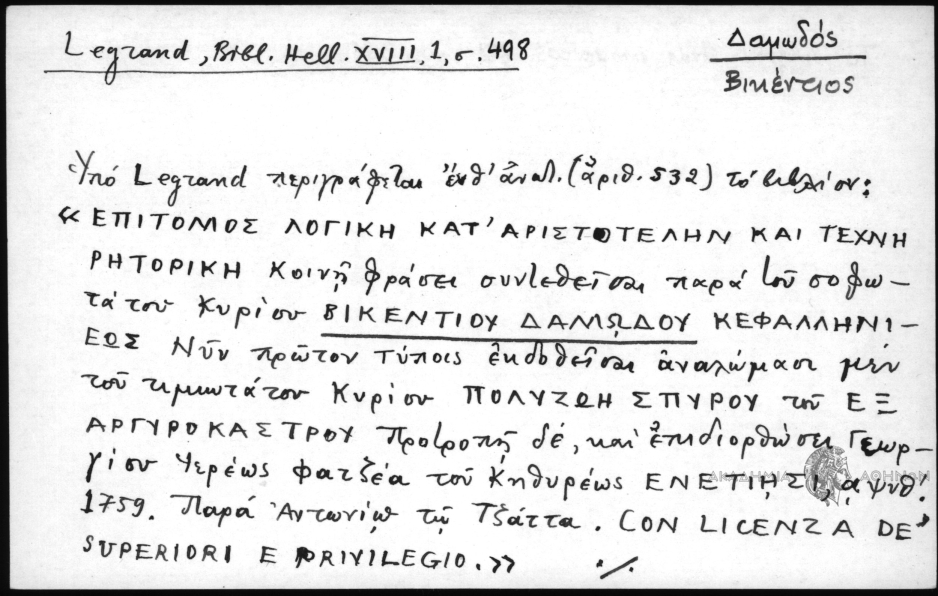 Legrand, Bibl. Hell. XVIII, 1, σ. 498
Δαμωδός
Βικέντιος
Ὑπό Legrand περιγράφεται ἐνθ' ἀνωτ. (ἀριθ. 532) τό βιβλίον:
«ΕΠΙΤΟΜΟΣ ΛΟΓΙΚΗ ΚΑΤ' ΑΡΙΣΤΟΤΕΛΗΝ ΚΑΙ ΤΕΧΝΗ
ΡΗΤΟΡΙΚΗ Κοινῇ φράσει συντεθεῖσαι παρά τοῦ σοφω-
τάτου Κυρίου ΒΙΚΕΝΤΙΟΥ ΔΑΜΩΔΟΥ ΚΕΦΑΛΛΗΝΙ-
ΕΩΣ Νῦν πρῶτον τύποις ἐκδοθεῖσαι ἀναλώμασι μέν
τοῦ τιμιωτάτου Κυρίου ΠΟΛΥΖΩΗ ΣΠΥΡΟΥ τοῦ ΕΞ
ΑΡΓΥΡΟΚΑΣΤΡΟΥ Προτροπῇ δέ, καί ἐπιδιορθώσει Γεωρ-
γίου Ἱερέως Φατζέα τοῦ Κηθυρέως ΕΝΕΤΙΗΣΙ, αψνθ'.
1759. Παρά Ἀντωνίῳ τῷ Τζάττα. CON LICENZA DE'
SUPERIORI E PRIVILEGIO.» ./.
ΑΚΑΔΗΜΙΑ ΑΘΗΝΩΝ